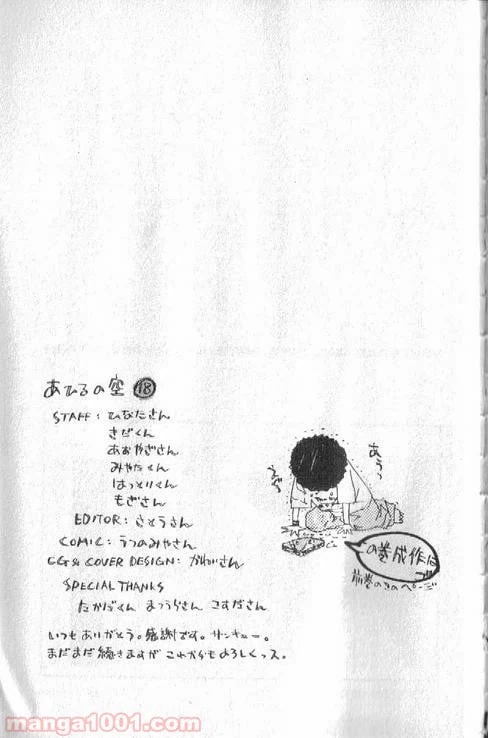 あひるの空 18
STAFF: ひなたさん
きだくん
あおやぎさん
みやたくん
はっとりくん
もぎさん
EDITOR: さとうさん
COMIC: うつのみやさん
CG & COVER DESIGN: かわいさん
SPECIAL THANKS
たかだくん まつうらさん こすださん
いつもありがとう。感謝です。サンキュー。
まだまだ続きますが これからもよろしくっス。
あうっ
manga1001.com